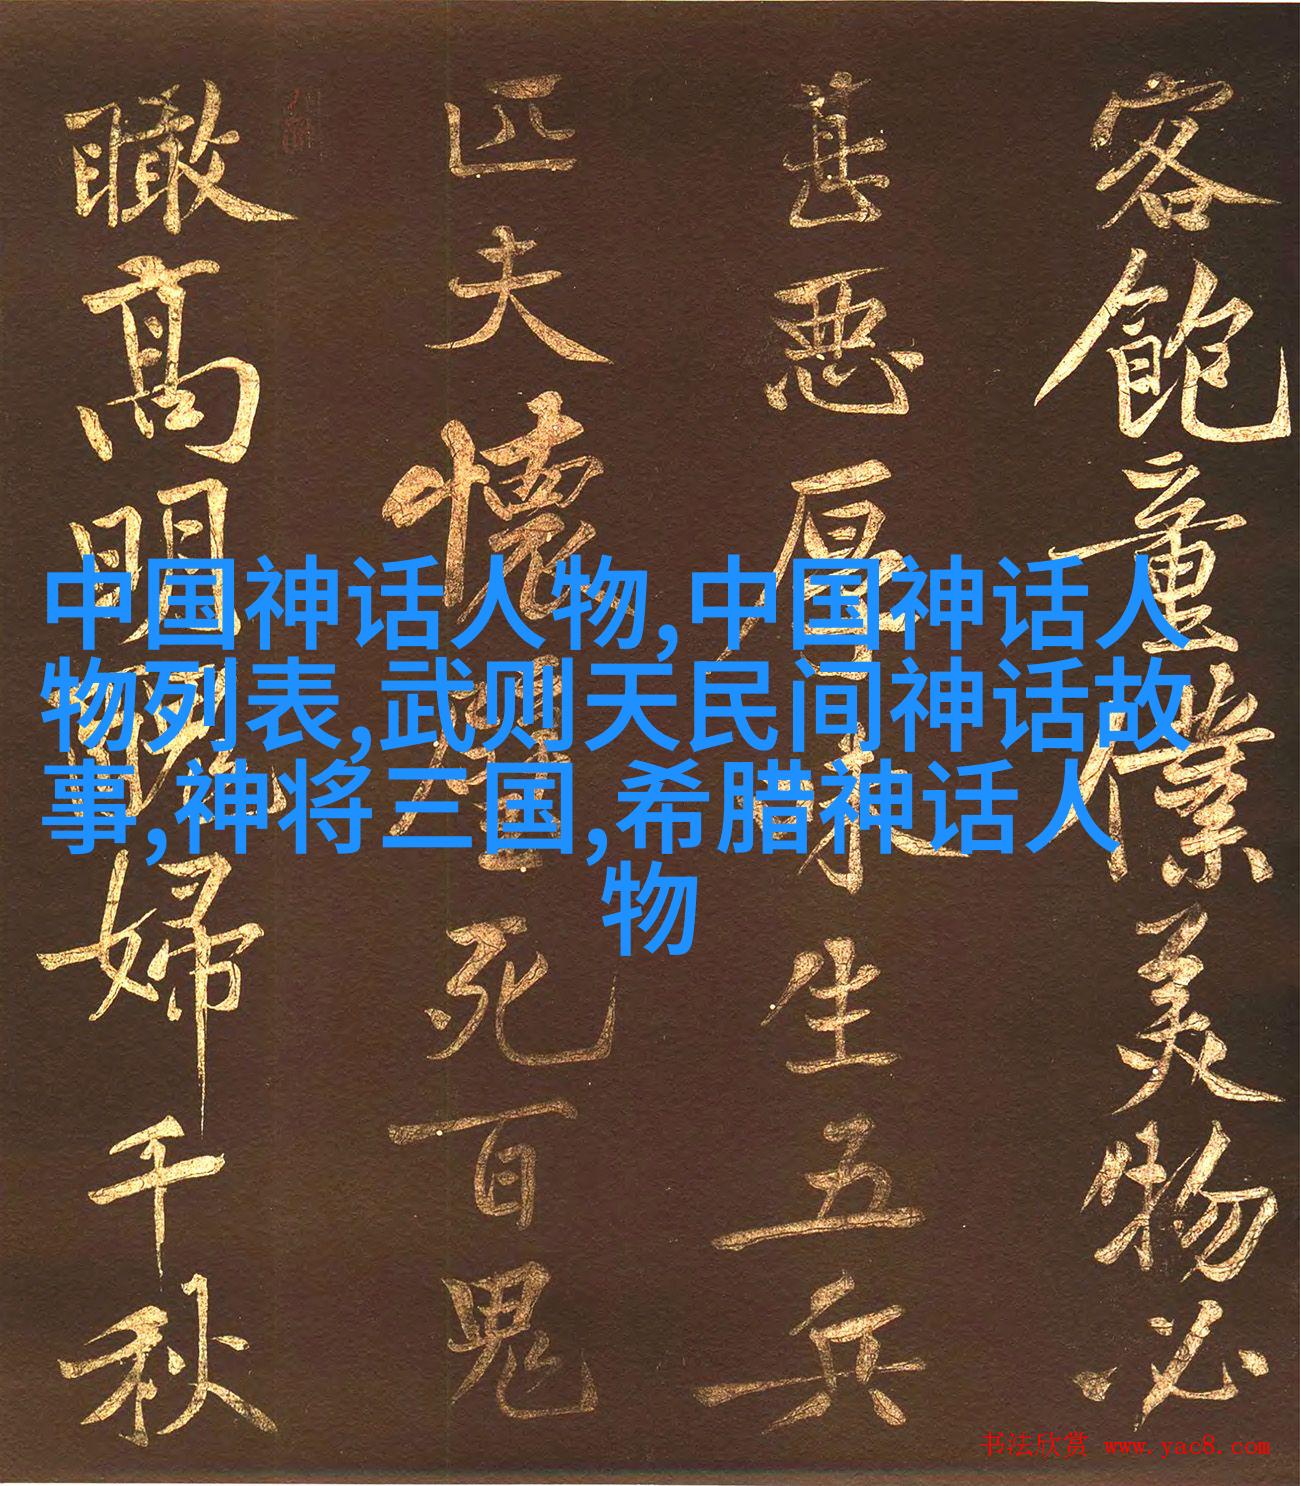 客飽童僕美物必
甚惡厚味生五兵
匹夫懷璧死百鬼
瞰高明醜婦千秋
中国神话人物,中国神话人
物列表,武则天民间神话故
事,神将三国,希腊神话人
物
书法欣赏 www.yac8.com